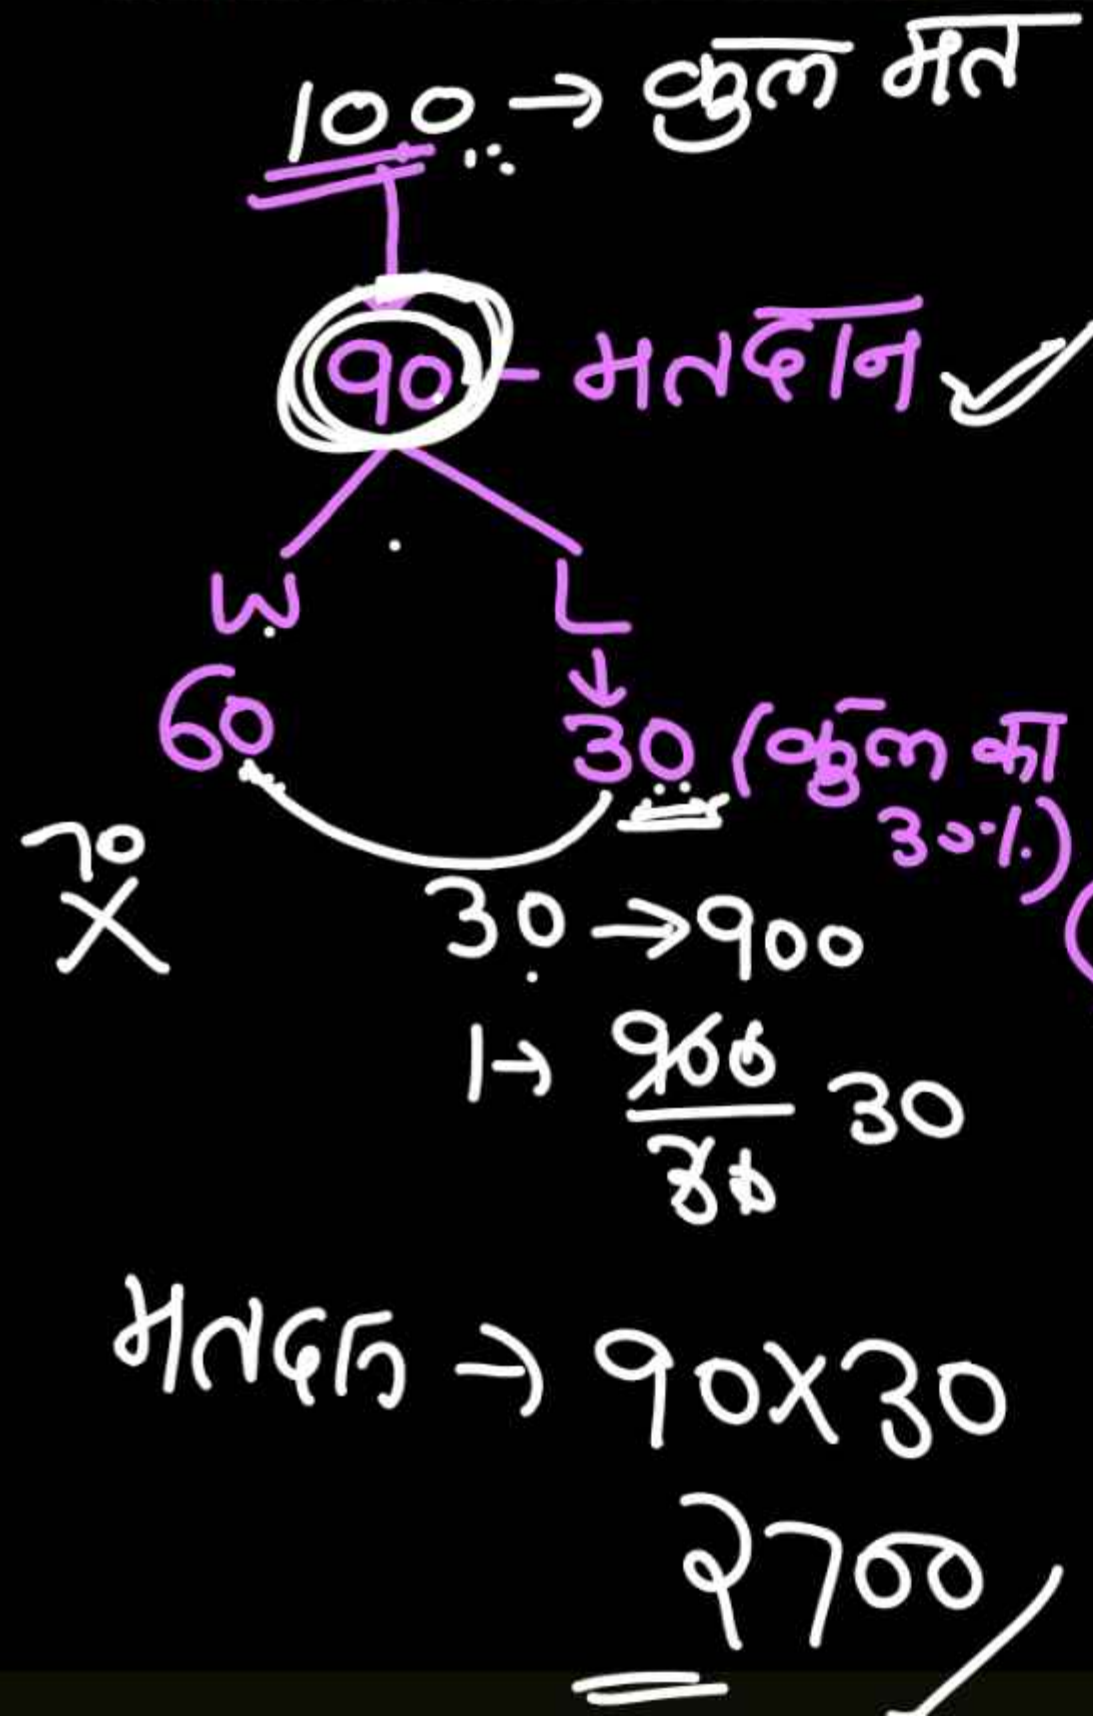 100 → कुल मत
90 - मतदान ✓
W L
60 30 (कुल का
30%)
70
X
30 → 900
1 → 900/30 30
मतदान → 90X30
2700